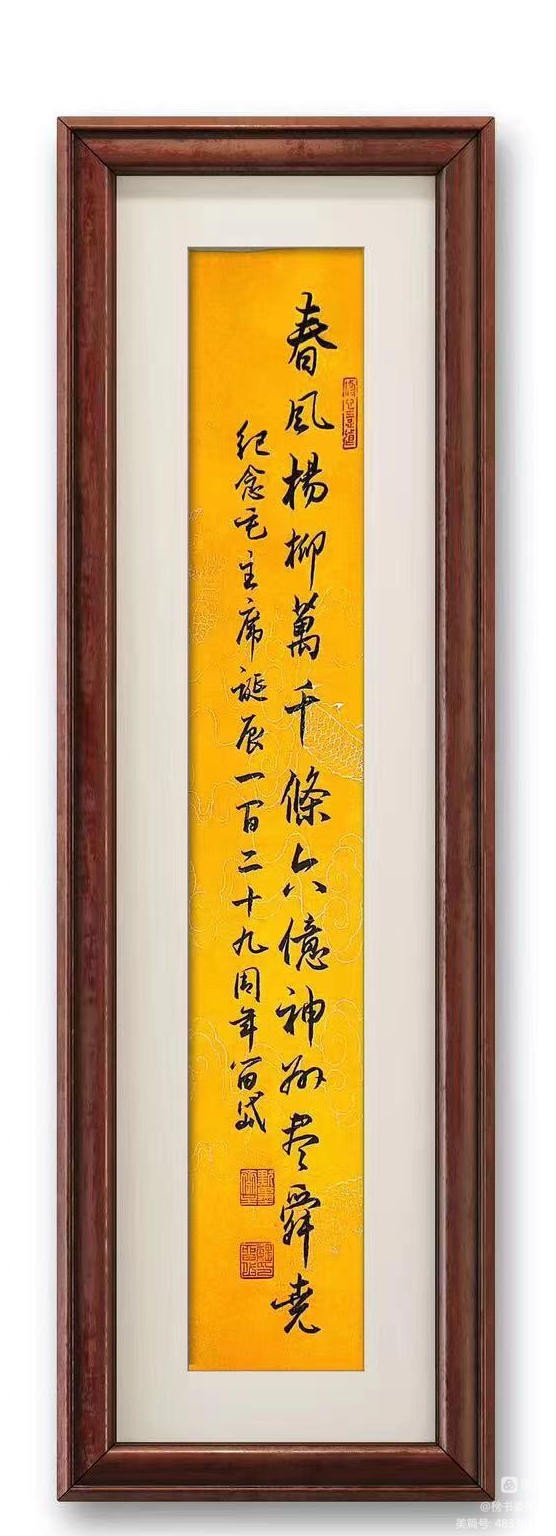 春風楊柳萬千條六億神州盡舜堯
紀念毛主席誕辰一百二十九周年留岱
美篇号